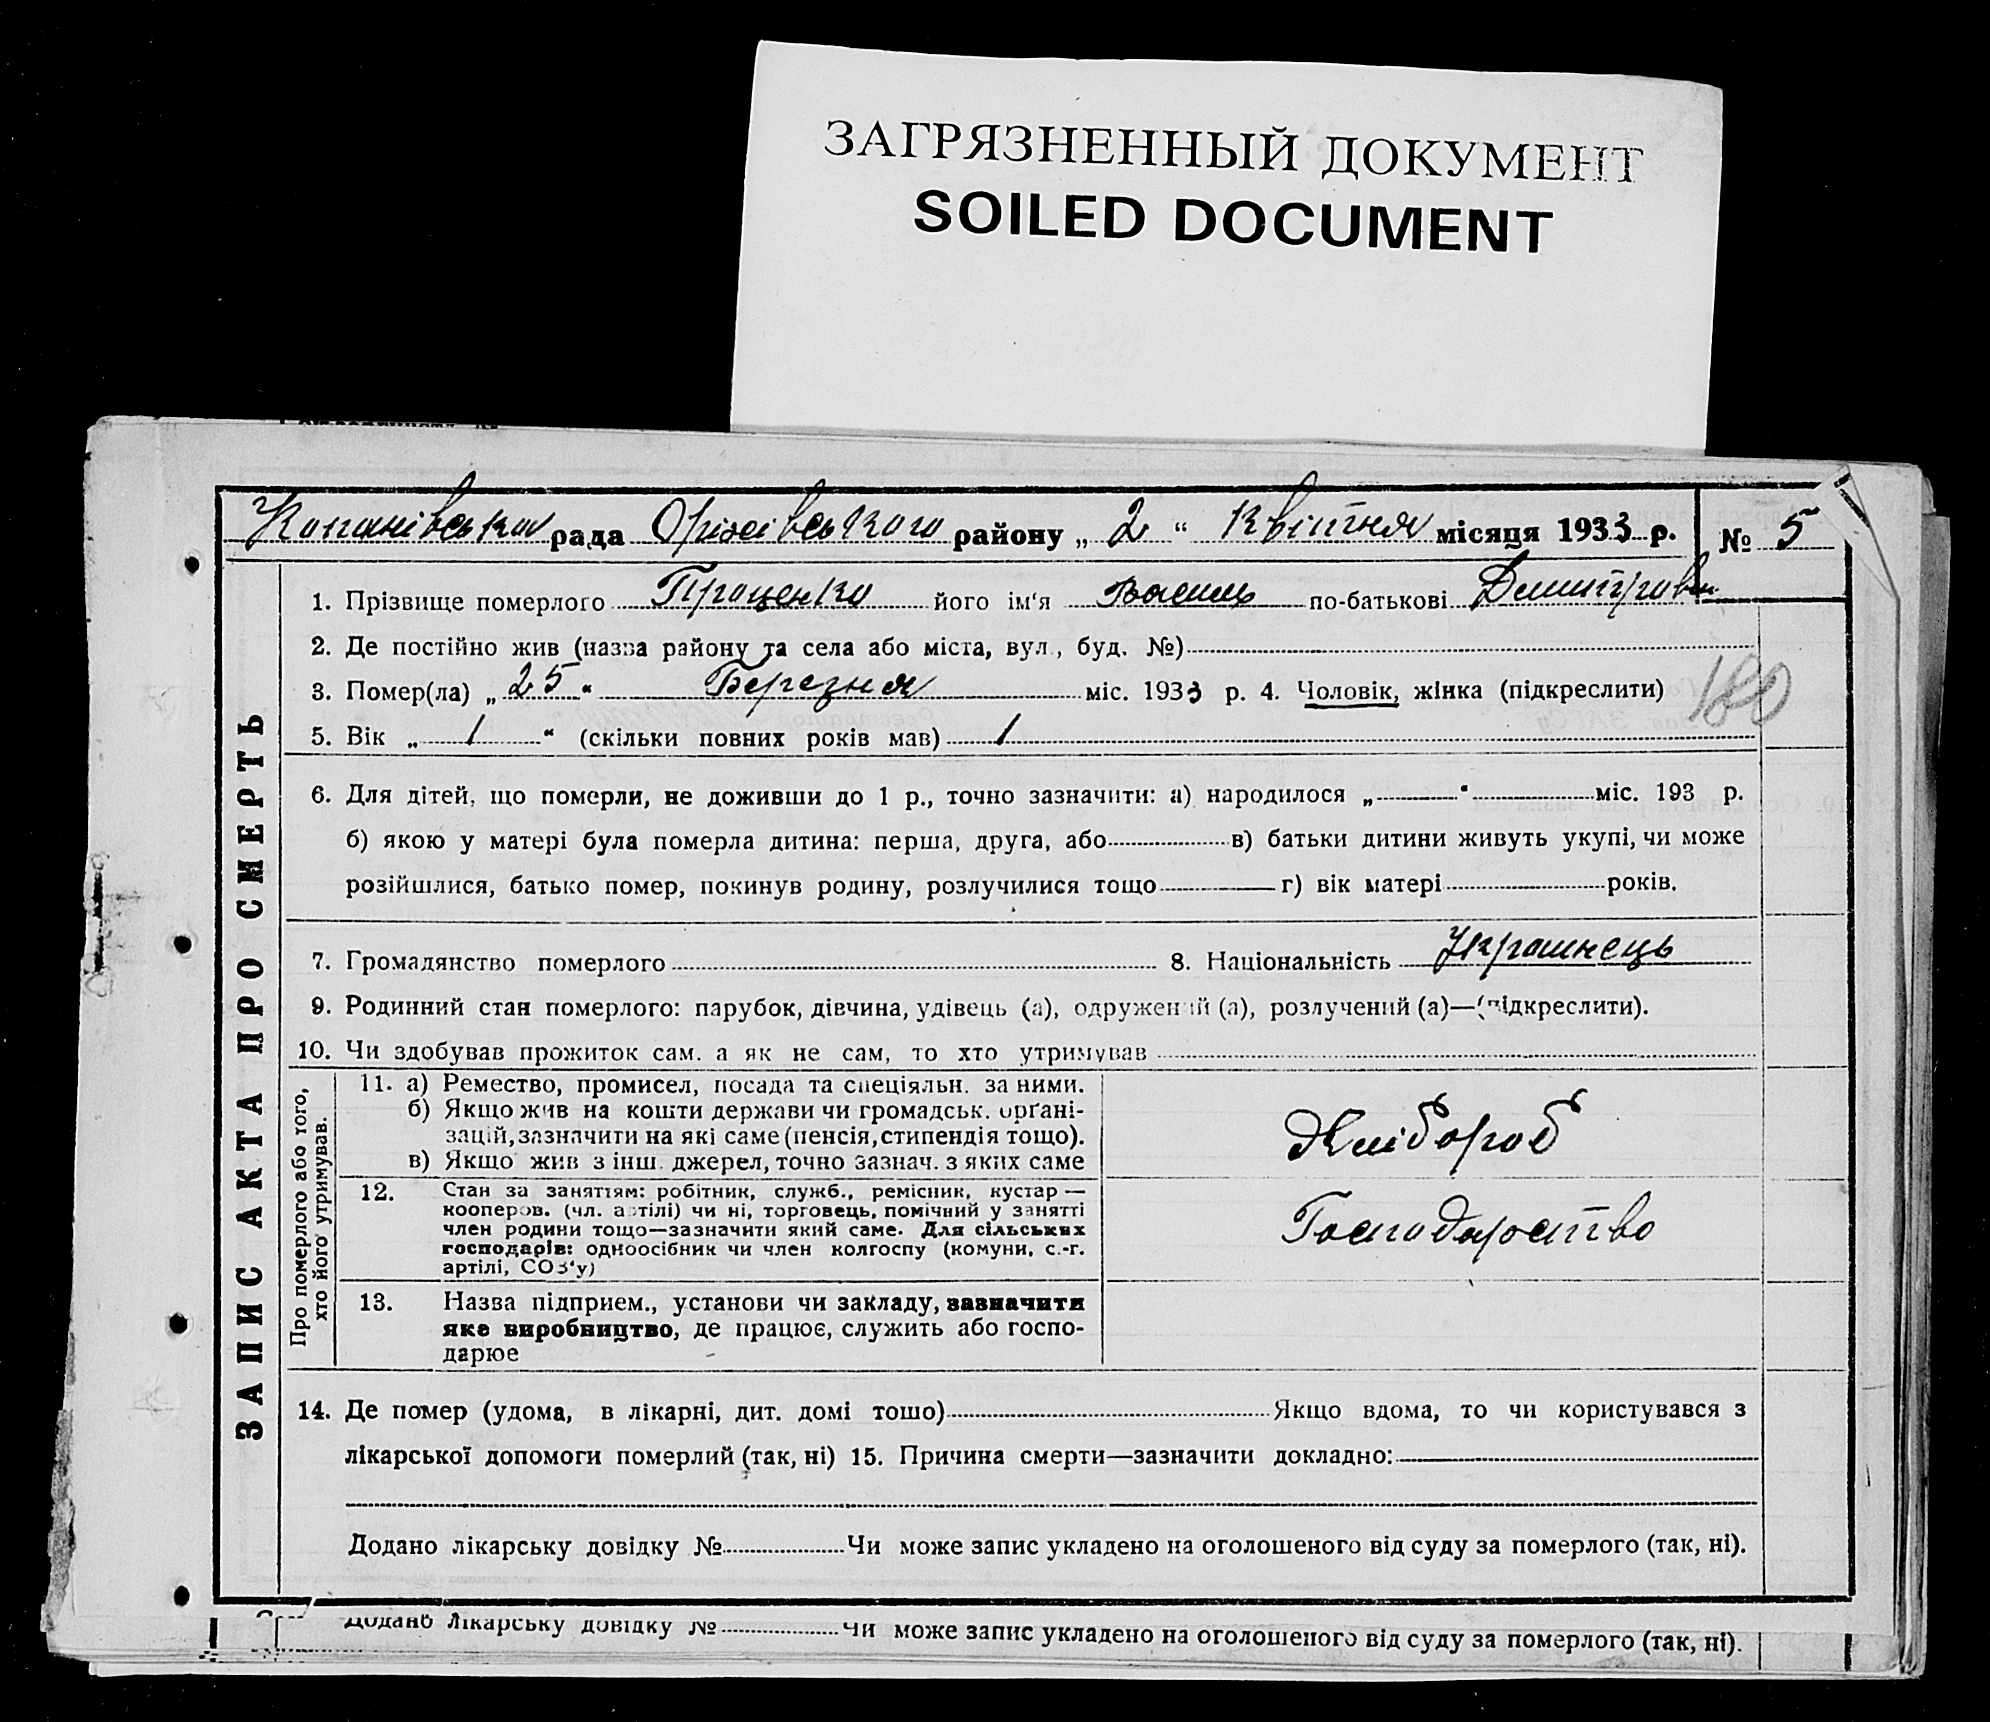 ЗАГРЯЗНЕННЫЙ ДОКУМЕНТ
SOILED DOCUMENT
Копанівська рада Оріхівського району „ 2 “ Квітня місяця 1933 р. № 5
ЗАПИС АКТА ПРО СМЕРТЬ
1. Прізвище померлого Проценко його ім'я Василь по-батькові Дмитрович
2. Де постійно жив (назва району та села або міста, вул., буд. №)
3. Помер(ла) „ 25 “ Березня міс. 1933 р. 4. Чоловік, жінка (підкреслити)
180
5. Вік „ 1 “ (скільки повних років мав) 1
6. Для дітей, що померли, не доживши до 1 р., точно зазначити: а) народилося „ “ міс. 193 р.
б) якою у матері була померла дитина: перша, друга, або в) батьки дитини живуть укупі, чи може
розійшлися, батько помер, покинув родину, розлучилися тощо г) вік матері років.
7. Громадянство померлого 8. Національність Українець
9. Родинний стан померлого: парубок, дівчина, удівець (а), одружений (а), розлучений (а)—(підкреслити).
10. Чи здобував прожиток сам. а як не сам, то хто утримував
Про померлого або того,
хто його утримував.
11. а) Ремество, промисел, посада та спеціяльн. за ними.
б) Якщо жив на кошти держави чи громадськ. орґані-
зацій, зазначити на які саме (пенсія, стипендія тощо).
в) Якщо жив з інш. джерел, точно зазнач. з яких саме
Хлібороб
12. Стан за заняттям: робітник, служб., ремісник, кустар —
кооперов. (чл. артілі) чи ні, торговець, помічний у занятті
член родини тощо—зазначити який саме. Для сільських
господарів: одноосібник чи член колгоспу (комуни, с.-г.
артілі, СОЗ'у)
Господарство
13. Назва підприєм., установи чи закладу, зазначити
яке виробництво, де працює, служить або госпо-
дарює
14. Де помер (удома, в лікарні, дит. домі тощо) Якщо вдома, то чи користувався з
лікарської допомоги померлий (так, ні) 15. Причина смерти—зазначити докладно:
Додано лікарську довідку № Чи може запис укладено на оголошеного від суду за померлого (так, ні).
Додано лікарську довідку № Чи може запис укладено на оголошеного від суду за померлого (так, ні).